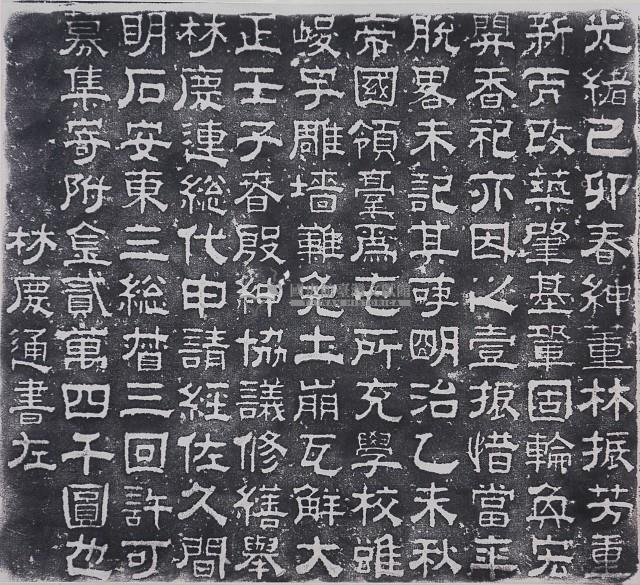 光緒己卯春紳董林振芳重
新而改築肇基鞏固輪奐宏
開香祀亦因以壹振惜當年
脫畧未記其時明治乙未秋
帝國領臺爲屯所充學校雖
峻宇雕墻難免土崩瓦解大
正壬子春殷紳協議修繕舉
林慶連総代申請經佐久間
明石安東三総督三回許可
募集寄附金貳萬四千圓也
林慶通書左
TAIWAN HISTORICA